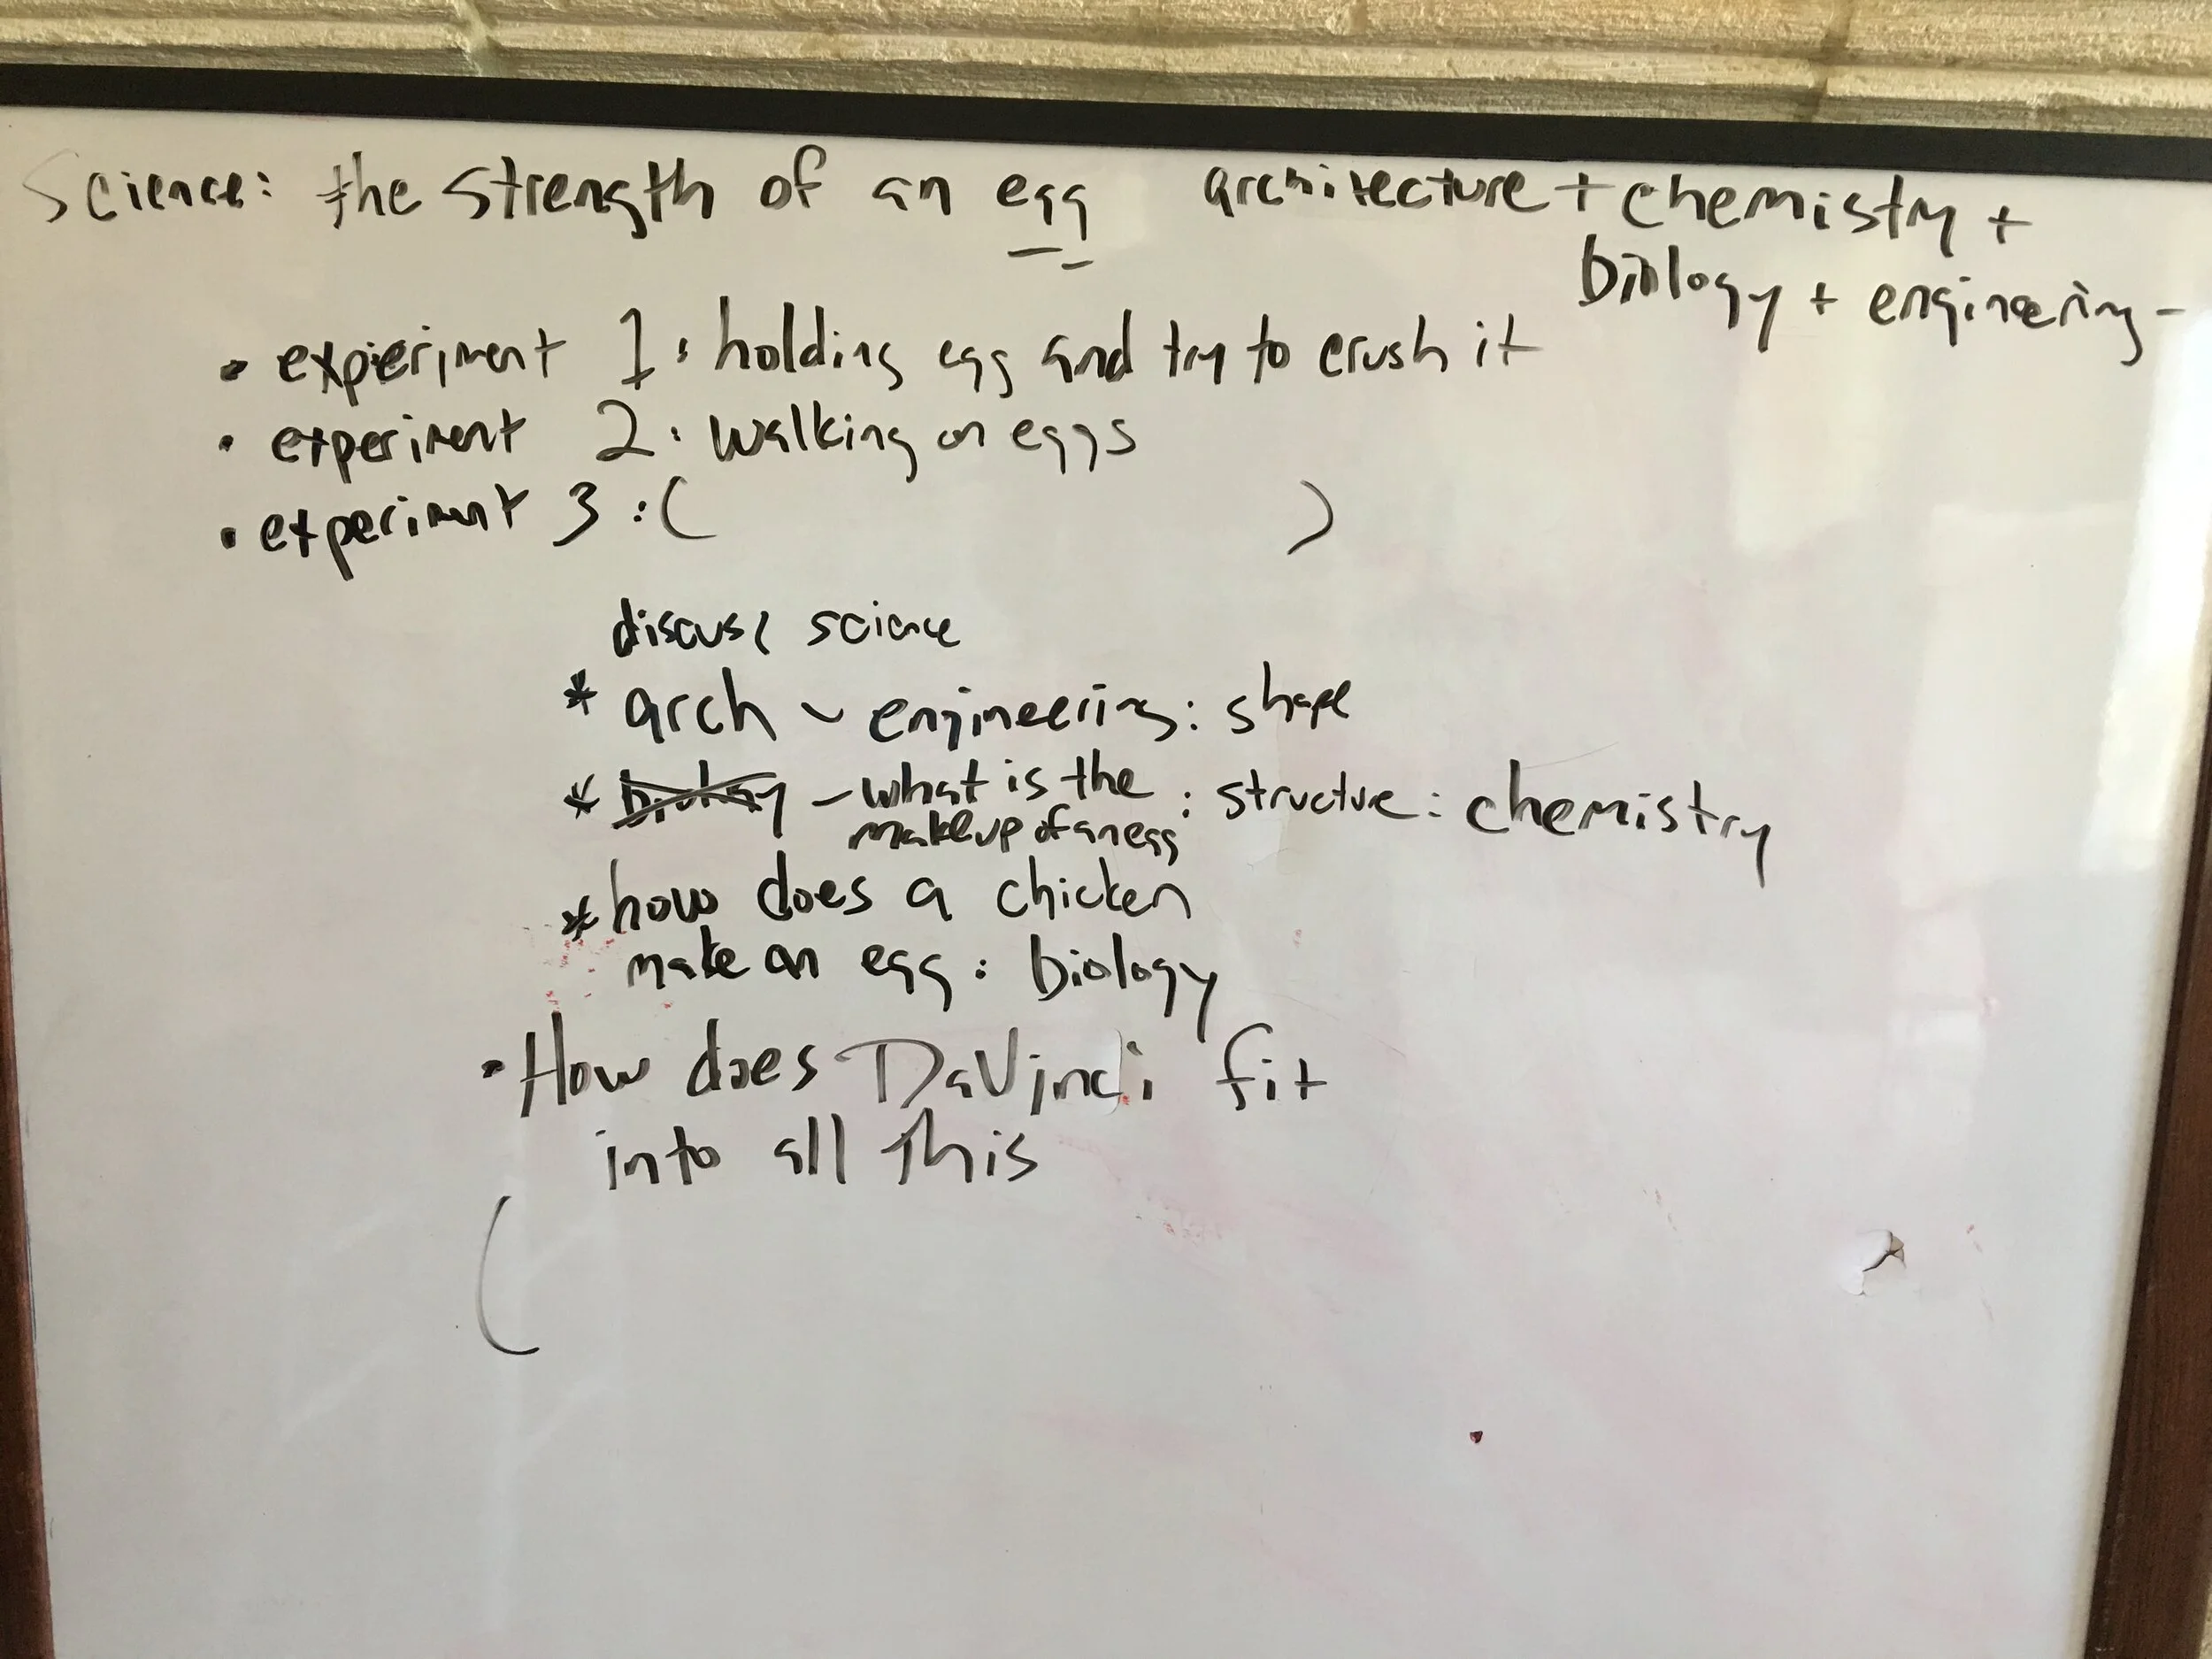 Science: the strength of an egg architecture + chemistry +
biology + engineering -
• experiment 1: holding egg and try to crush it
• experiment 2: walking on eggs
• experiment 3: ( )
discuss science
* arch ~ engineering: shape
* biology - what is the : structure: chemistry
makeup of an egg
* how does a chicken
make an egg: biology
• How does DaVinci fit
into all this
(